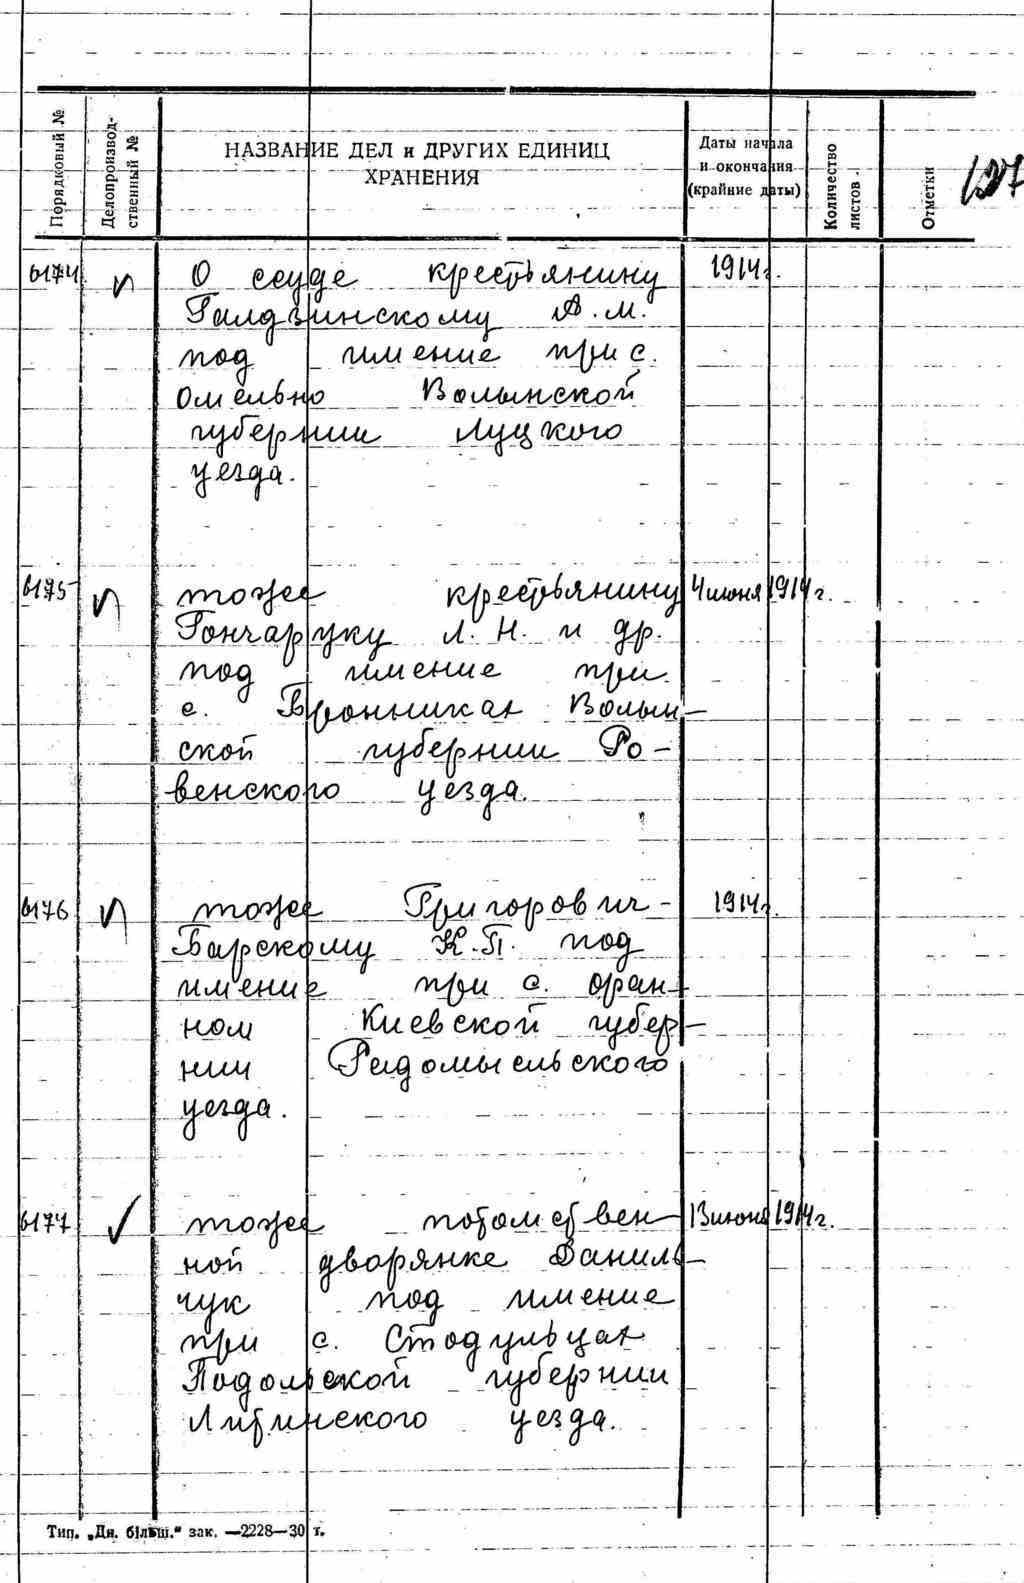 Порядковый №
Делопроизвод-
ственный №
НАЗВАНИЕ ДЕЛ и ДРУГИХ ЕДИНИЦ
ХРАНЕНИЯ
Даты начала
и окончания
(крайние даты)
Количество
листов.
Отметки
127
6174 О ссуде крестьянину 1914г.
Галдзинскому А.М.
под имение при с.
Омельно Волынской
губернии Луцкого
уезда.
6175 тоже крестьянину 4 июня 1914г.
Гончаруку Л.Н. и др.
под имение при
с. Бронниках Волын-
ской губернии Ро-
венского уезда.
6176 тоже Григорович- 1914г.
Барскому К.П. под
имение при с. Оран-
ном Киевской губер-
нии Радомысельского
уезда.
6177 тоже потомствен- 13 июня 1914г.
ной дворянке Даниль-
чук под имение
при с. Стодульцах
Подольской губернии
Литинского уезда.
Тип. „Дн. більш." зак. —2228—30 т.